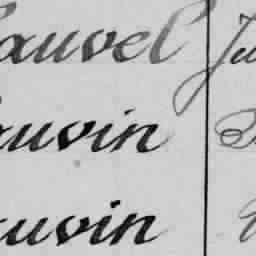 auvel Ju
auvin
auvin